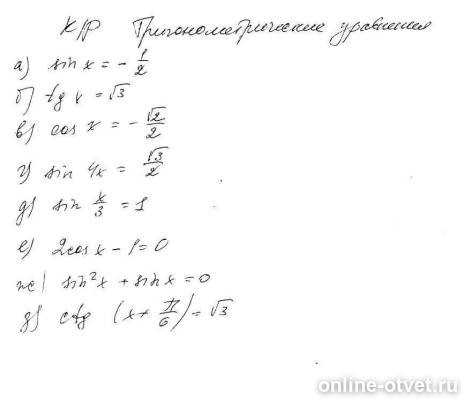 К/Р Тригонометрические уравнения
а) sin x = - 1/2
б) tg x = √3
в) cos x = - √2/2
г) sin 4x = √3/2
д) sin x/3 = 1
е) 2cos x - 1 = 0
ж) sin²x + sin x = 0
з) ctg (x + π/6) = √3
online-otvet.ru